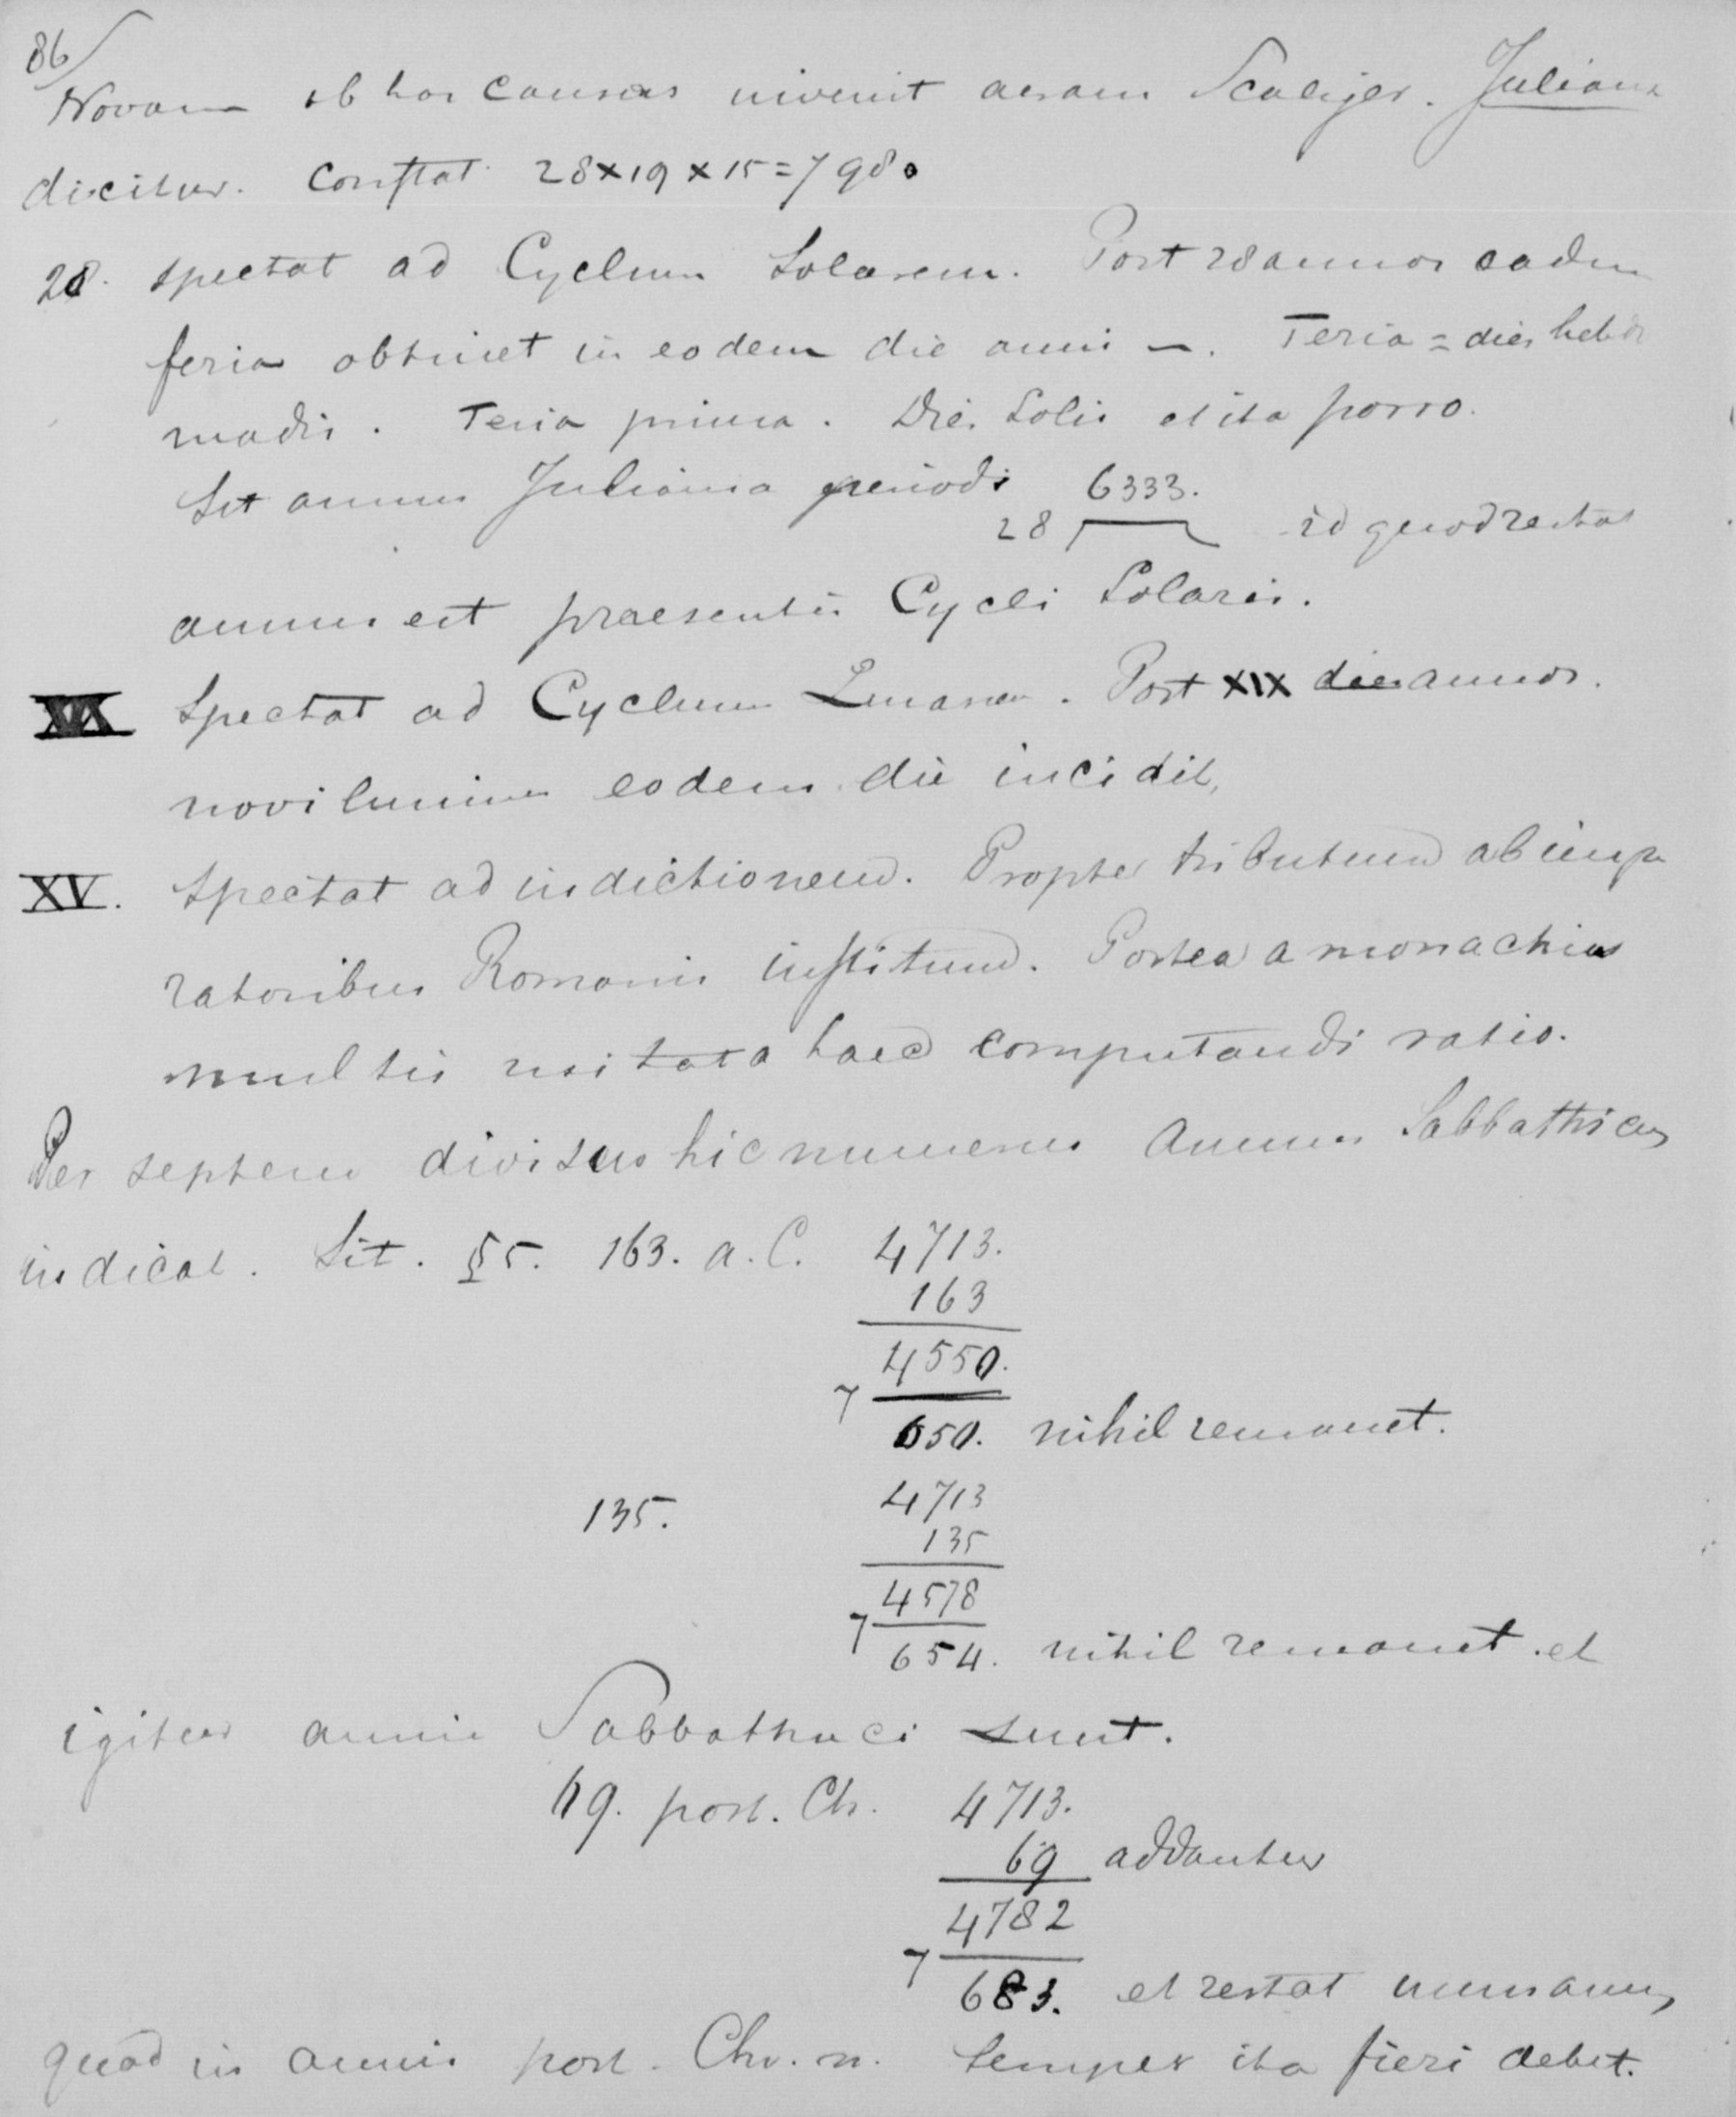 86
Novam ob has causas invenit aeram Scaliger. Juliana
dicitur. Constat 28×19×15=7980
28. spectat ad Cyclum Solarem. Post 28 annos eadem
feria obtinet in eodem die anni —. Feria = dies hebdo
madis. Feria prima. Dies Solis et ita porro.
Sit annus Juliana periodi 6333.
28 id quod restat
annus est praesentis Cycli Solaris.
XIX Spectat ad Cyclum Lunarem. Post XIX dies annos.
novilunium eodem die incidit,
XV. Spectat ad indictionem. Propter tributum ab impe
ratoribus Romanis institutum. Postea a monachis
multis usitata haec computandi ratio.
Per septem divisus hic numerus annum Sabbathicum
indicat. Sit. §5. 163. a. C. 4713.
163
4550.
7
650. nihil remanet.
135. 4713
135
4578
7
654. nihil remanet. et
igitur annis Sabbathici sunt.
69. post. Ch. 4713.
69 addantur
4782
7
683. et restat unus annus,
quod in annis post. Chr. n. semper ita fieri debet.